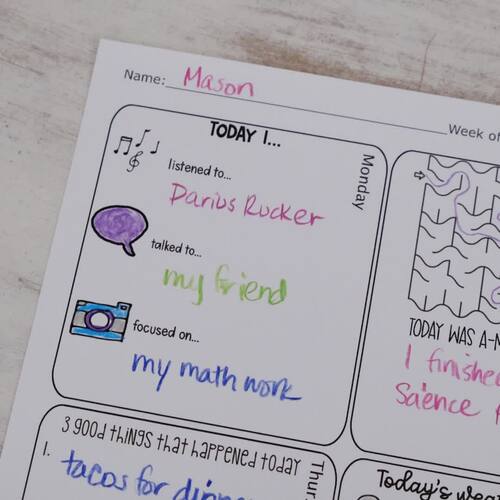 Name: Mason
Week of
TODAY I...
Monday
listened to...
Darius Rucker
talked to...
my friend
focused on...
my math work
TODAY WAS A-M
I finished
Science
3 good things that happened today
Thurs
1. tacos for dinner
Today's